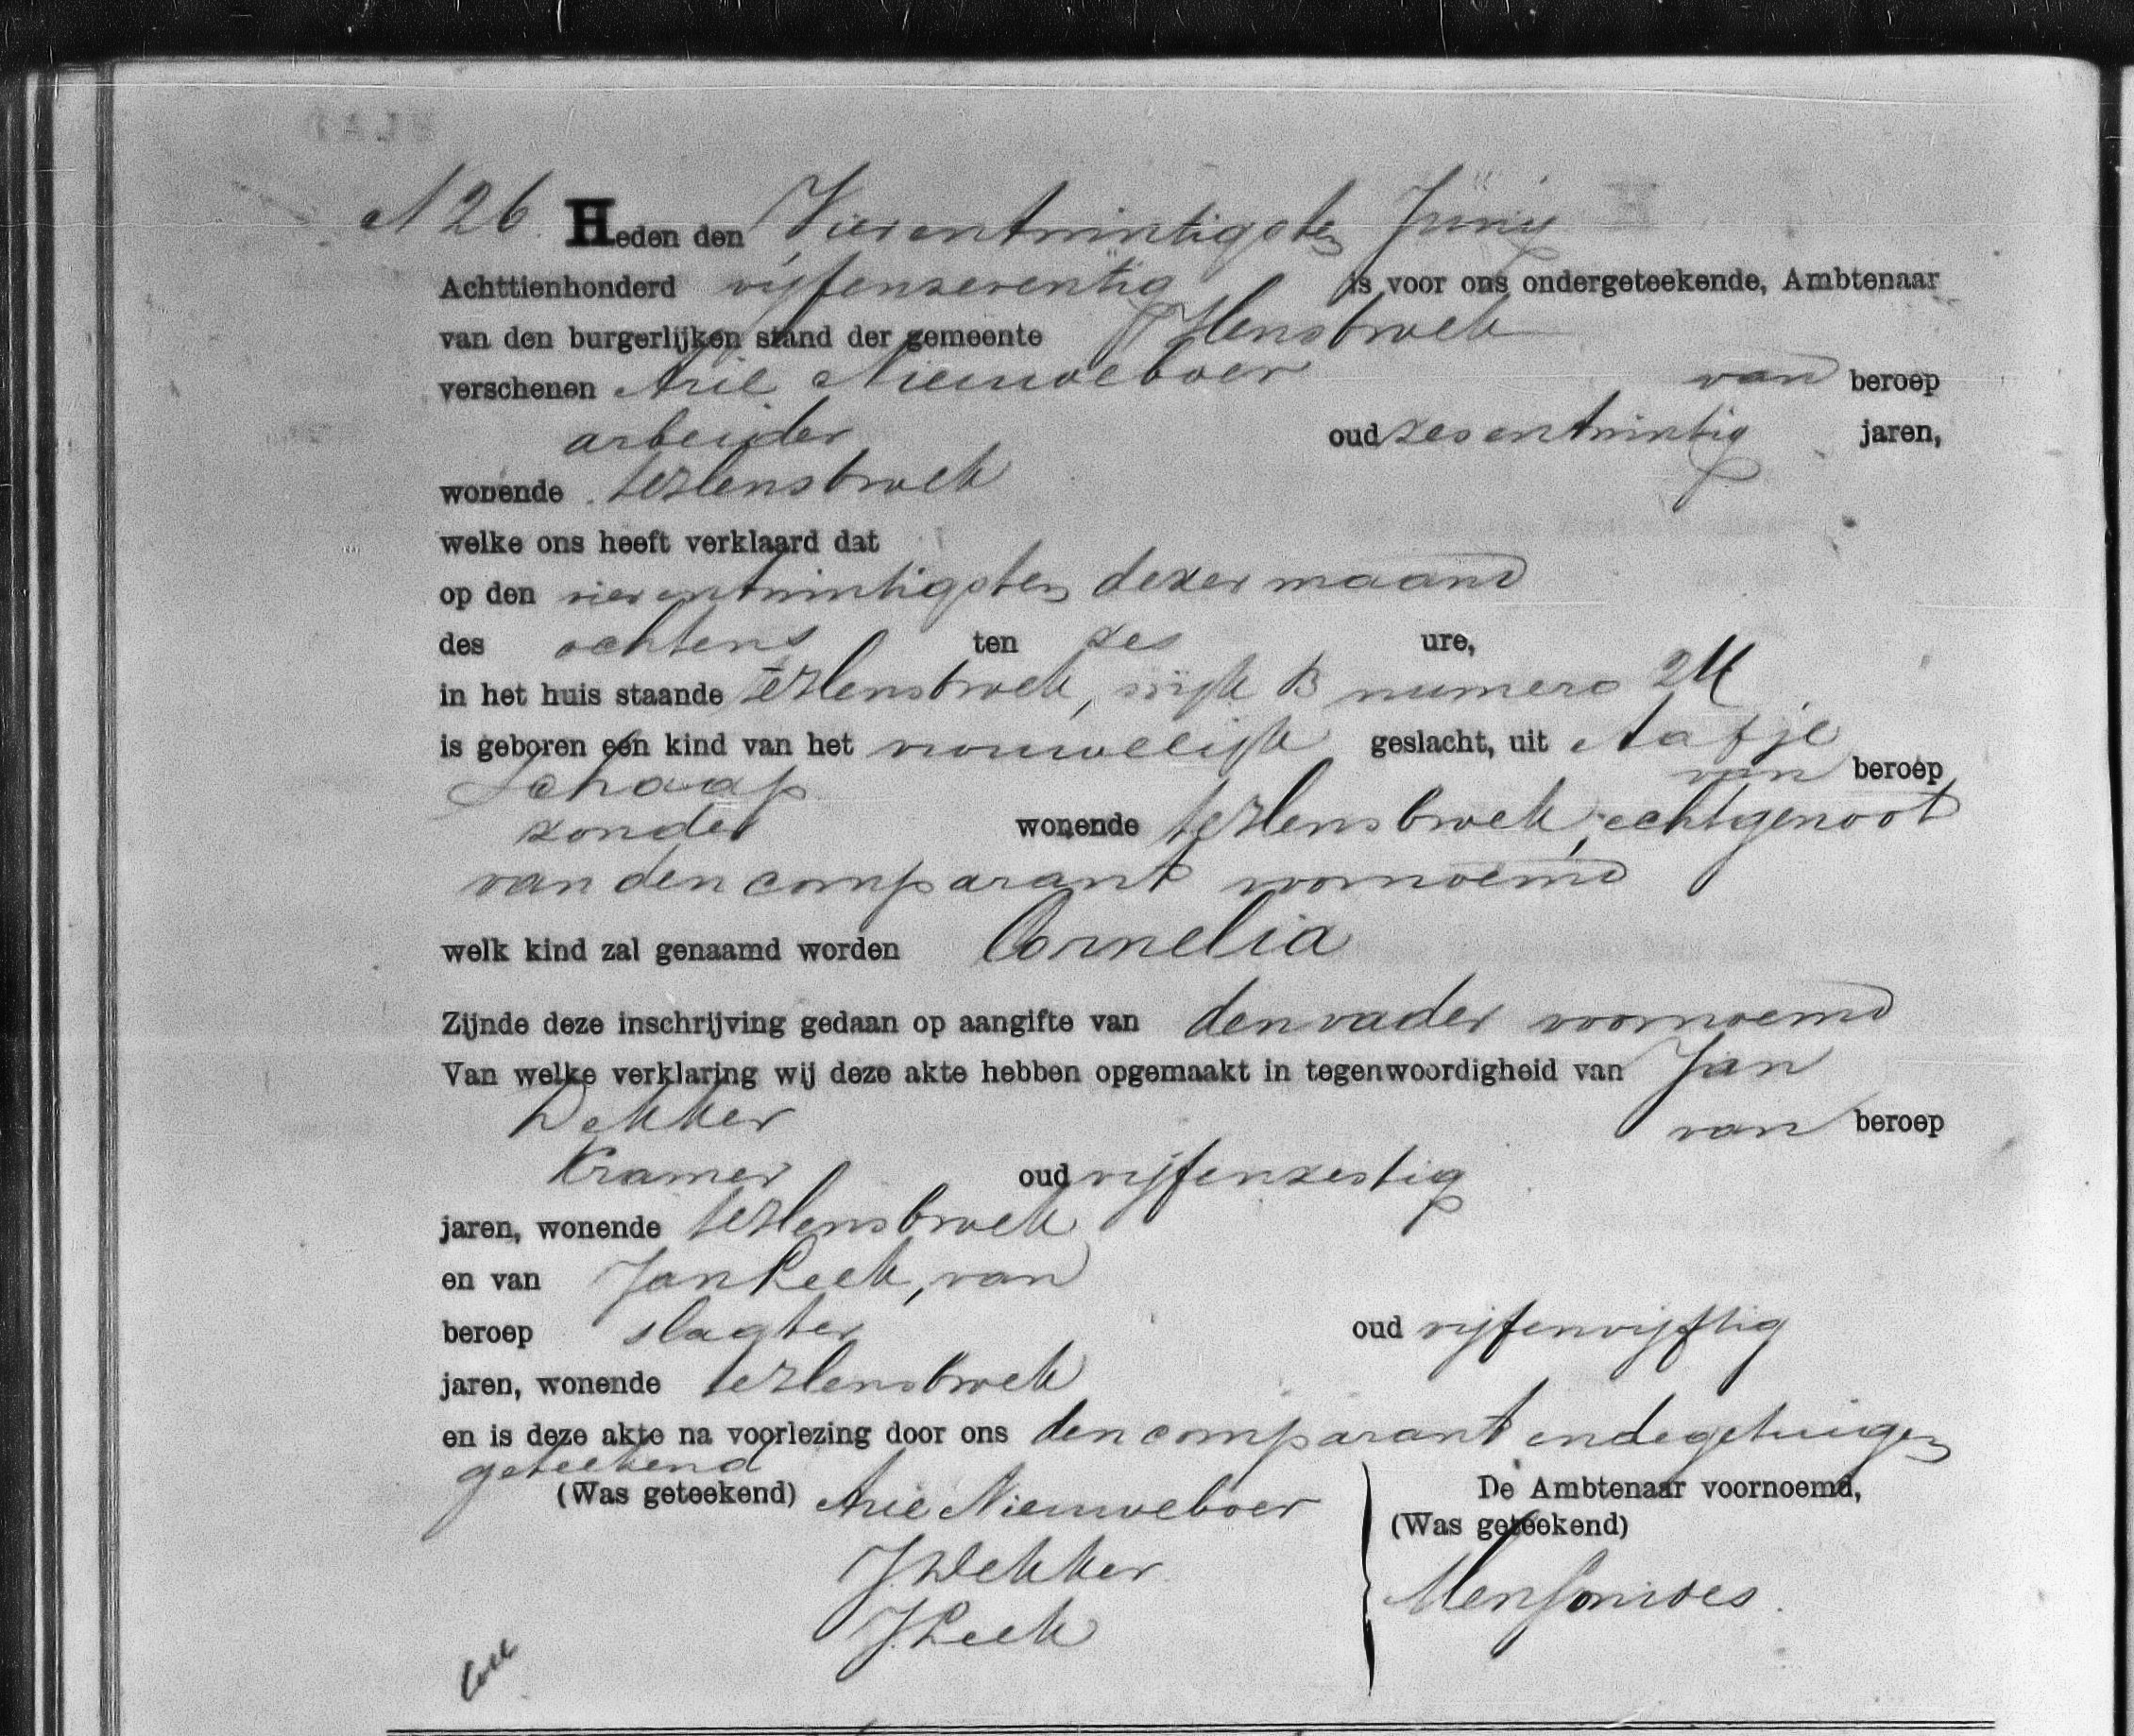 N 26. Heden den Vierentwintigsten Junij
Achttienhonderd vijfenzeventig is voor ons ondergeteekende, Ambtenaar
van den burgerlijken stand der gemeente Hensbroek
verschenen Arie Nieuweboer van beroep
arbeider oud zesentwintig jaren,
wonende te Hensbroek
welke ons heeft verklaard dat
op den vierentwintigsten dezer maand
des ochtens ten zes ure,
in het huis staande te Hensbroek, wijk B numero 24
is geboren een kind van het vrouwelijk geslacht, uit Aafje
Schaap van beroep
zonder wonende te Hensbroek, echtgenoot
van den comparant voornoemd
welk kind zal genaamd worden Cornelia
Zijnde deze inschrijving gedaan op aangifte van den vader voornoemd
Van welke verklaring wij deze akte hebben opgemaakt in tegenwoordigheid van Jan
Dekker van beroep
Kramer oud vijfenzestig
jaren, wonende te Hensbroek
en van Jan Leek, van
beroep slagter oud vijfenvijftig
jaren, wonende te Hensbroek
en is deze akte na voorlezing door ons den comparant en de getuigen
geteekend
(Was geteekend) Arie Nieuweboer
De Ambtenaar voornoemd,
(Was geteekend)
J. Dekker
J. Leek
Mensonides.